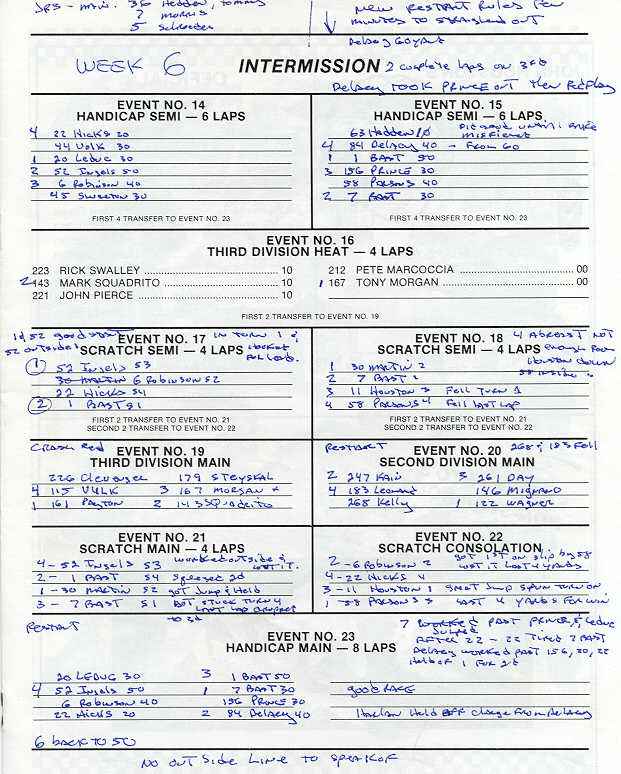 JRS - MAIN. 36 Hedden, Tommy
7 MORRIS
5 Schroeder
NEW RESTART RULES FEW
MINUTES TO STRAIGHTEN OUT
Delsey Go
WEEK 6
INTERMISSION
2 complete laps on 3rd
Delsey TOOK PRINCE OUT then Replay
EVENT NO. 14
HANDICAP SEMI — 6 LAPS
4 22 Hicks 20
44 Volk 30
1 20 Leduc 30
2 52 Ingels 50
3 6 Robinson 40
45 Sweeton 30
FIRST 4 TRANSFER TO EVENT NO. 23
EVENT NO. 15
HANDICAP SEMI — 6 LAPS
63 Hedden 10
4 84 Delsey 40 - From 60
1 1 BAST 50
3 156 PRINCE 30
58 PARSONS 40
2 7 BAST 30
FIRST 4 TRANSFER TO EVENT NO. 23
EVENT NO. 16
THIRD DIVISION HEAT — 4 LAPS
223 RICK SWALLEY 10
2 143 MARK SQUADRITO 10
221 JOHN PIERCE 10
212 PETE MARCOCCIA 00
1 167 TONY MORGAN 00
FIRST 2 TRANSFER TO EVENT NO. 19
1 & 52 good
52 outside 1 IN TURN 1 &
EVENT NO. 17
SCRATCH SEMI — 4 LAPS
For Lead.
1 52 Ingels 53
30 MARTIN 6 Robinson 52
22 Hicks 54
2 1 BAST 51
FIRST 2 TRANSFER TO EVENT NO. 21
SECOND 2 TRANSFER TO EVENT NO. 22
EVENT NO. 18
SCRATCH SEMI — 4 LAPS
4 Abreast NOT
enough Room
Houston down
58 inside
1 30 MARTIN 2
2 7 BAST 1
3 11 Houston 3 Fell TURN 1
4 58 PARSONS 4 Fell last lap
FIRST 2 TRANSFER TO EVENT NO. 21
SECOND 2 TRANSFER TO EVENT NO. 22
CRASH Red
EVENT NO. 19
THIRD DIVISION MAIN
226 Clevenger 179 STEYSKAL
4 115 VULK 3 167 MORGAN
1 161 PAYTON 2 143 SQUADRITO
RESTART
EVENT NO. 20
268 & 183 Fell
SECOND DIVISION MAIN
2 247 KAIN 3 261 DAY
4 183 Leonard 146 MIGNANO
268 Kelly 1 122 WAGNER
EVENT NO. 21
SCRATCH MAIN — 4 LAPS
4 - 52 Ingels 53 worked outside &
lost it.
2 - 1 BAST 54 Speed 2d
1 - 30 MARTIN 52 got Jump & Held
3 - 7 BAST 51 BUT STUCK TURN 4
LAST LAP dropped
to 3d
EVENT NO. 22
SCRATCH CONSOLATION
got 1ST on slip by 58
2 - 6 Robinson 2 lost it last 4 yards
4 - 22 Hicks 4
3 - 11 Houston 1 Shot Jump Spun Turn on
1 - 58 PARSONS 3 LAST 4 YARDS FOR WIN
RESTART
EVENT NO. 23
HANDICAP MAIN — 8 LAPS
7 worked past Prince, & Leduc
AFTER 22 - 22 Tired 7 Past
Delsey worked past 156, 20, 22
Held of 1 For 2d
20 LEDUC 30 3 1 BAST 50
4 52 Ingels 50 1 7 BAST 30
6 Robinson 40 156 PRINCE 30
22 Hicks 20 2 84 Delsey 40
good RACE
Harlan Held OFF charge From Delsey
6 BACK TO 50
NO OUTSIDE LINE TO SPEAK OF